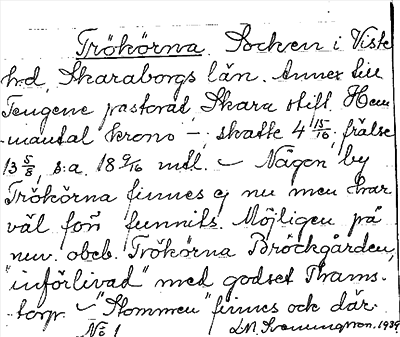 Trökörna. Socken i Viste
hd, Skaraborgs län. Annex till
Tengene pastorat, Skara stift. Hem-
mantal krono –, skatte 4 15/16, frälse
13 5/8, s:a. 18 9/16 mtl. – Någon by
Trökörna finnes ej nu men har
väl förr funnits. Möjligen på
nuv. obeb. Trökörna Bröckgården,
"införlivad" med godset Thams-
torp. – "Stommen" finnes och där
No 1